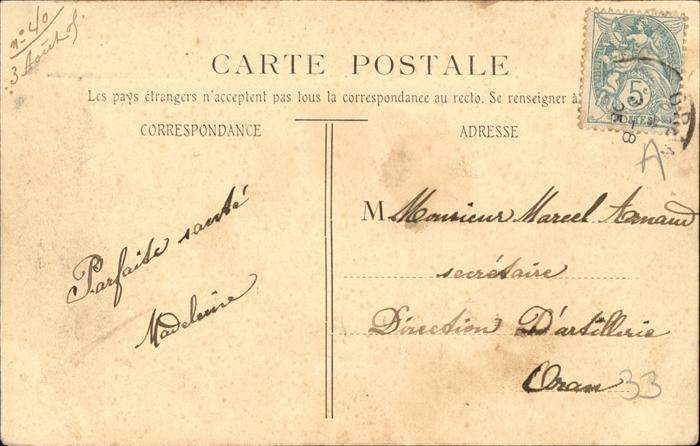 n° 40
3 Août 05
CARTE POSTALE
Les pays étrangers n'acceptent pas tous la correspondance au recto. Se renseigner à
CORRESPONDANCE
ADRESSE
5c
POSTES
A
Parfaite santé
Madeleine
M Monsieur Marcel Arnaud
secrétaire
Direction D'artillerie
Oran
33